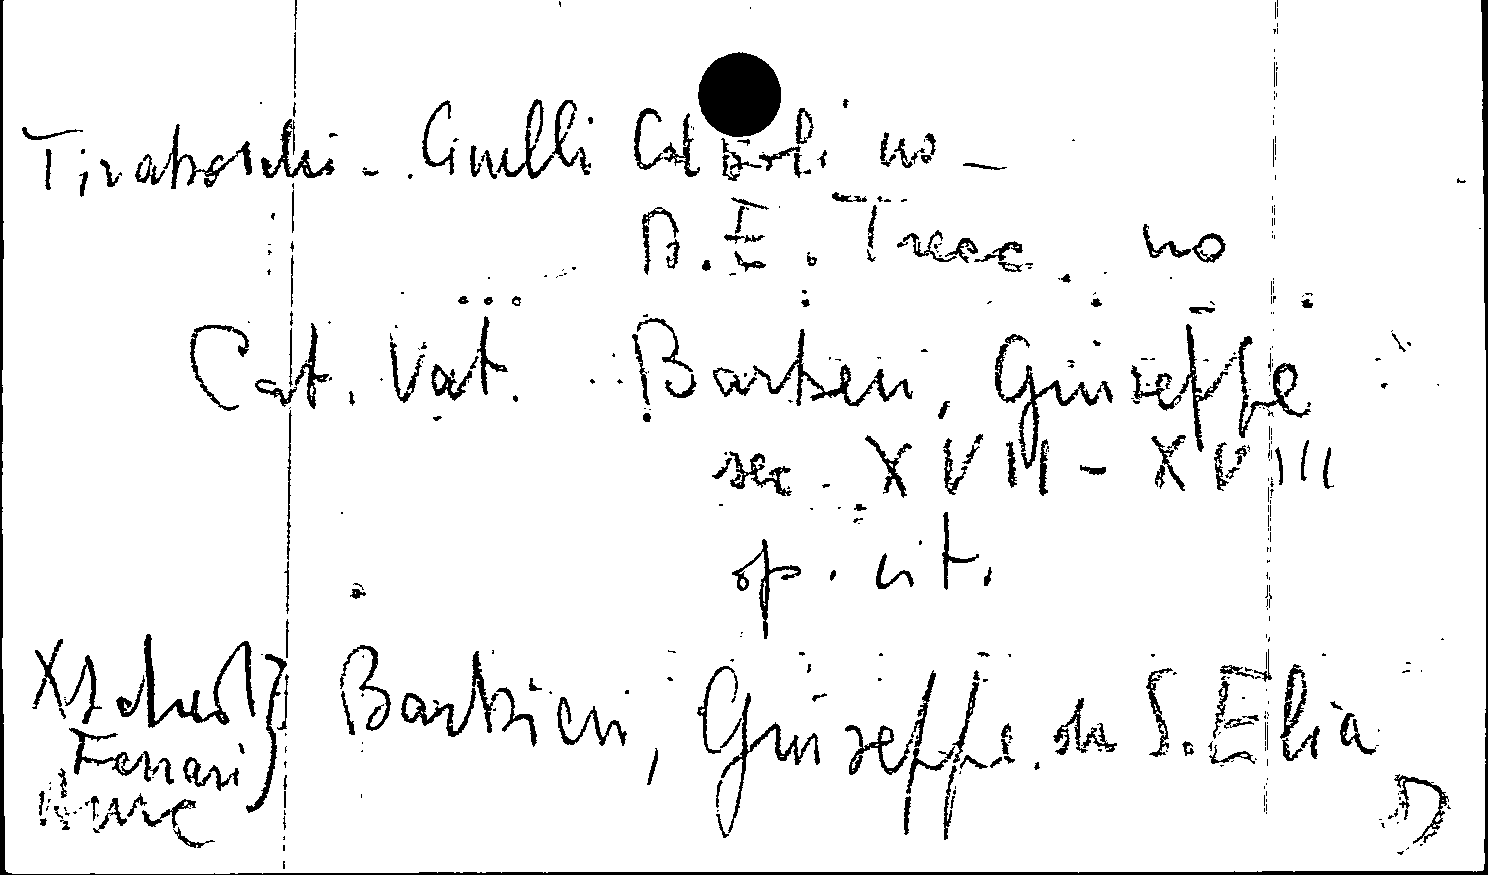 Tiraboschi - Cinelli Cat [...] no -
D. E. Trecc. no
Cat. Vat. Barbieri, Giuseppe
sec. XVII - XVIII
op. cit.
Barbieri, Giuseppe da S. Elia
Ferrari